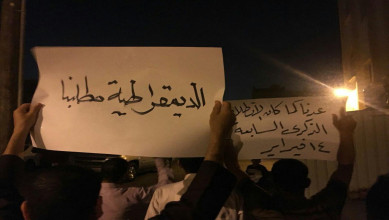 الديمقراطية مطلبنا
عدنا كما كان
الذكرى السابعة
١٤ فبراير